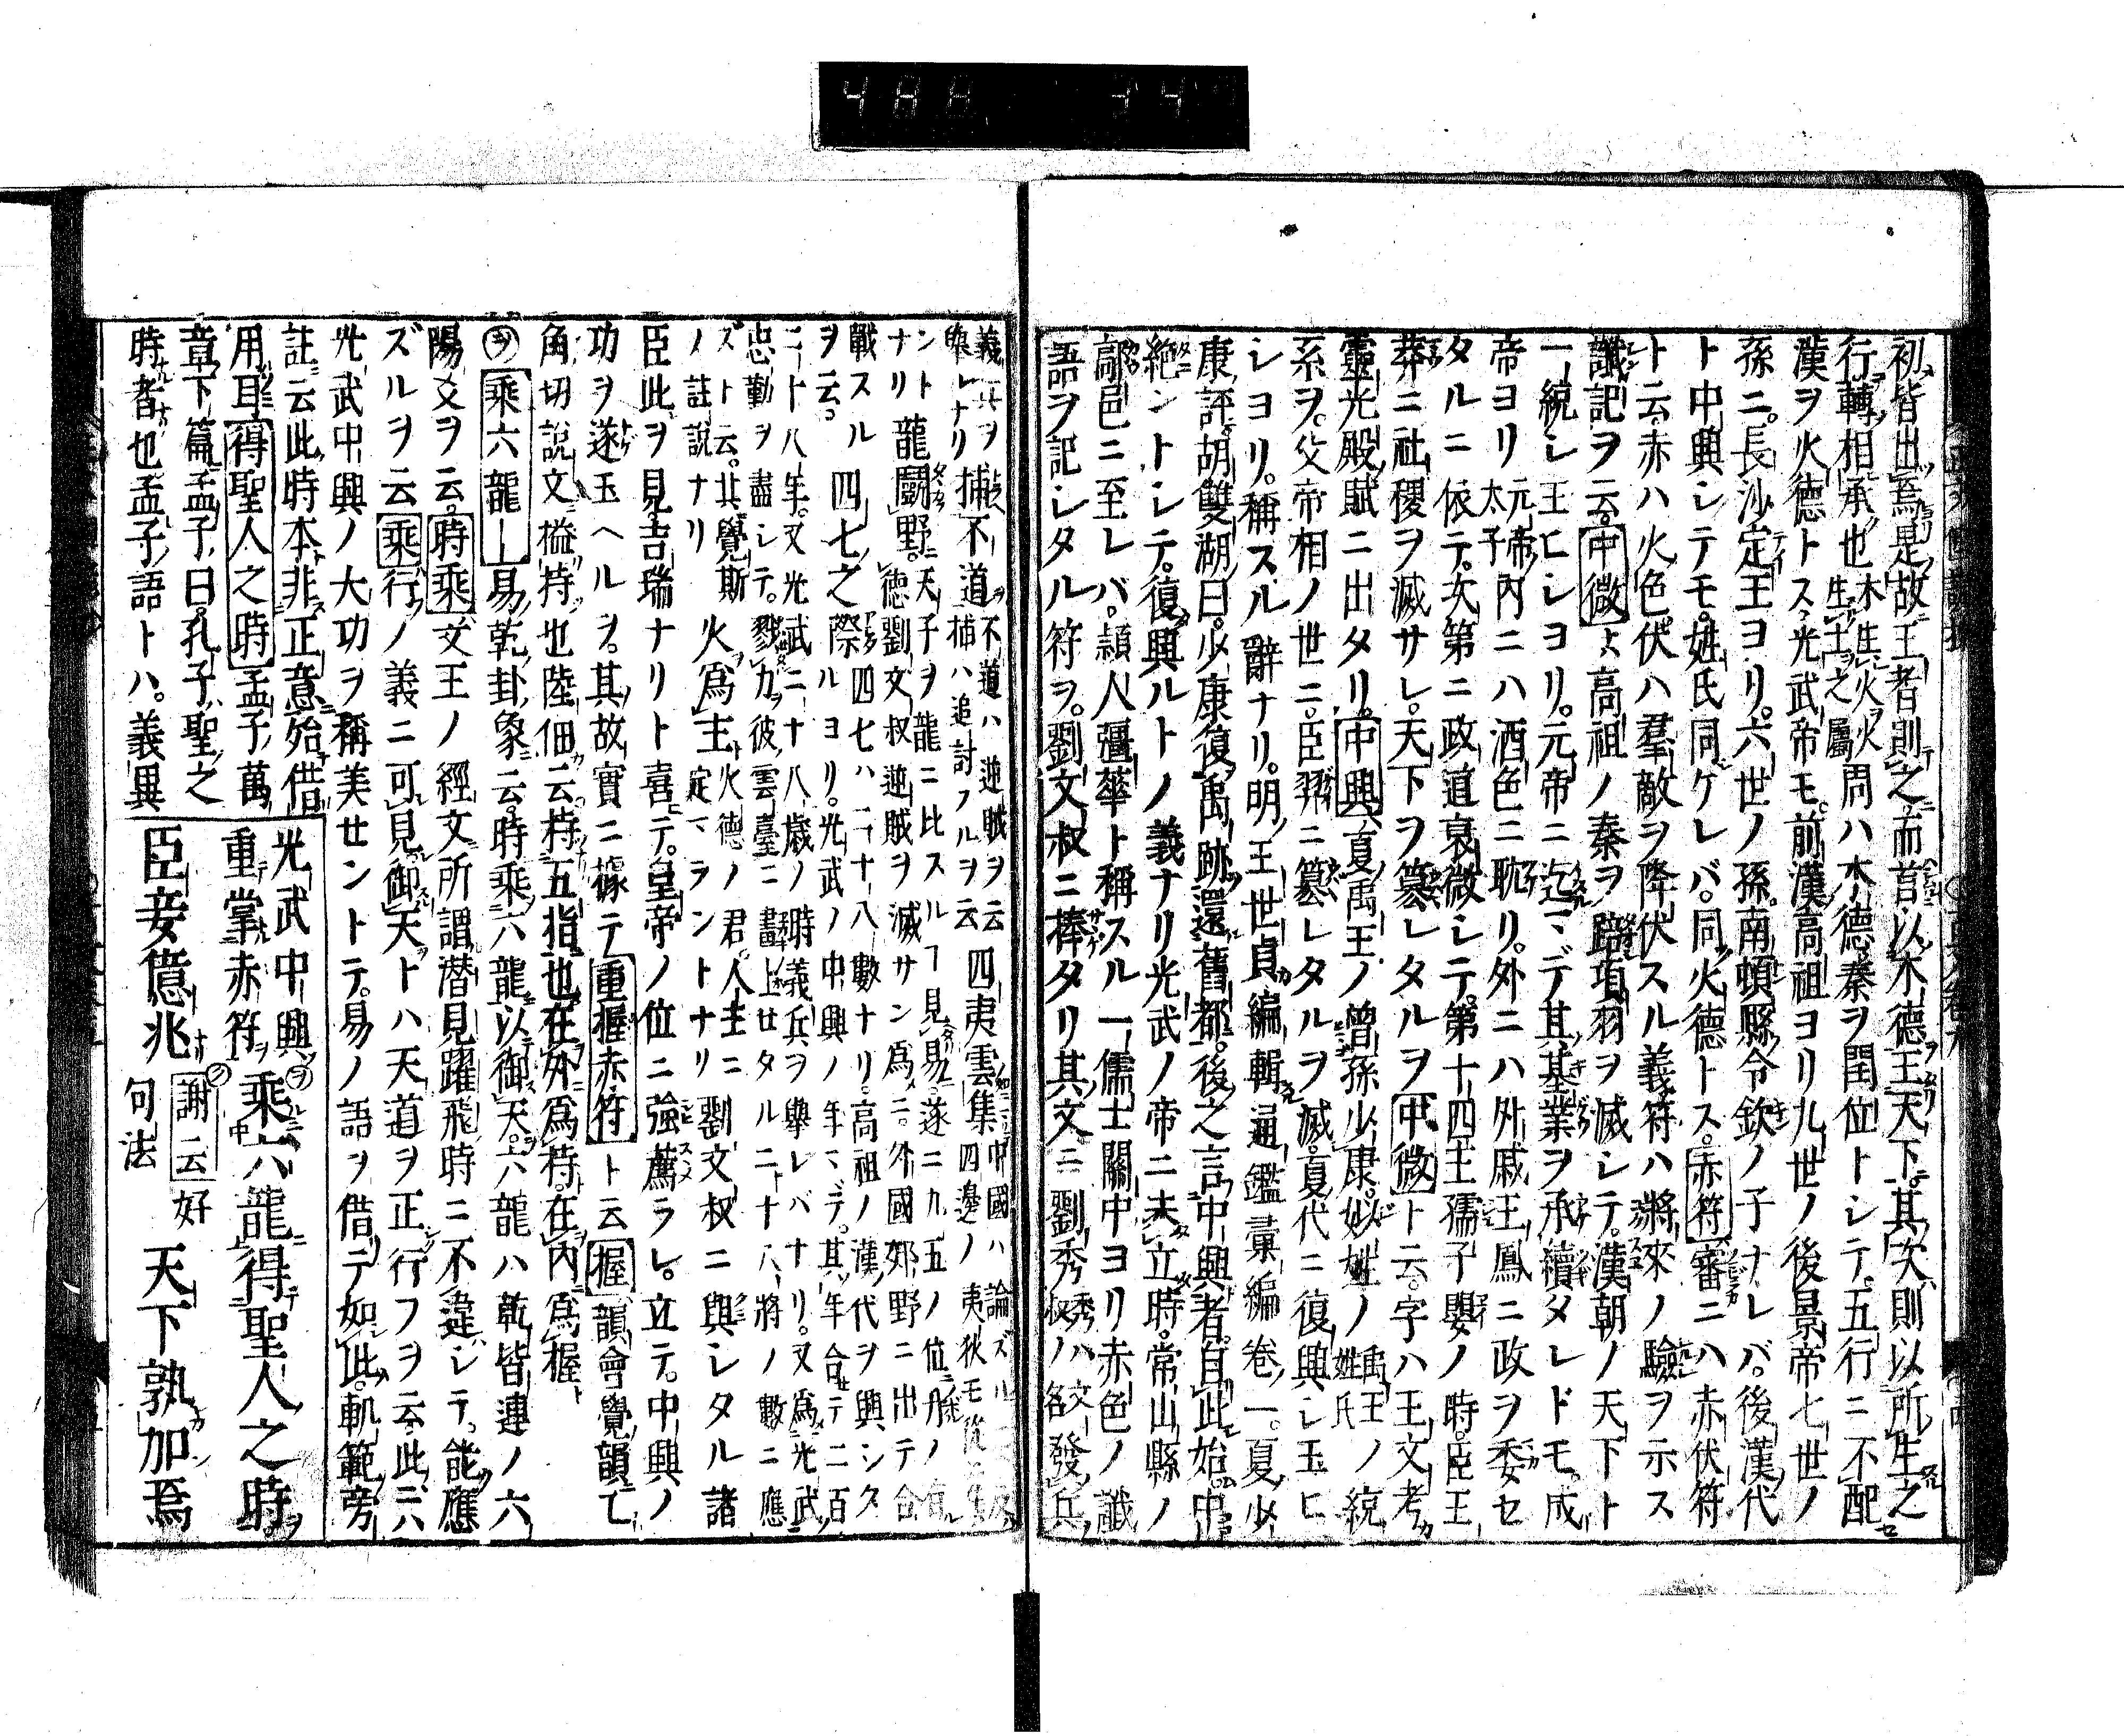 初皆出焉是故王者則之而首以木德王天下其次則以所生之
行轉相承也木生火火生土之屬周ハ木德秦ヲ閏位トシテ五行ニ不配
漢ヲ火德トス光武帝モ前漢高祖ヨリ九世ノ後景帝七世ノ
孫ニ長沙定王ヨリ六世ノ孫南頓縣令欽ノ子ナレバ後漢代
ト中興シテモ姓氏同ゲレバ同火德トス赤符審ニハ赤伏符
ト云赤ハ火色伏ハ羣敵ヲ降伏スル義符ハ將來ノ驗ヲ示ス
讖記ヲ云中微ハ高祖ノ秦ヲ踣項羽ヲ滅シテ漢朝ノ天下ト
一統シ王ヒシヨリ元帝ニ迄マデ其基業ヲ承續タレドモ成
帝ヨリ元帝太子内ニハ酒色ニ耽リ外ニハ外戚王鳳ニ政ヲ委セ
タルニ依テ次第ニ政道衰微シテ第十四王孺子嬰ノ時臣王
莽ニ社稷ヲ滅サレ天下ヲ簒レタルヲ中微ト云字ハ王文考
靈光殿賦ニ出タリ中興ハ夏禹王ノ曾孫少康姒姓ノ禹王ノ姓氏統
系ヲ父帝相ノ世ニ臣羿ニ簒レタルヲ滅夏代ニ復興シ玉ヒ
シヨリ稱スル辭ナリ明王世貞編輯通鑑彙編卷一夏少
康評胡雙湖曰少康復禹跡還舊都後之言中興者自此始中
絶ントシテ復興ルトノ義ナリ光武ノ帝ニ未立時常山縣ノ
鄗邑ニ至レバ頴人彊華ト稱スル一儒士關中ヨリ赤色ノ讖
語ヲ記シタル符ヲ劉文叔ニ捧タリ其文ニ劉秀秀ハ文叔ノ名發兵
捕不道不道ハ逆賊ヲ云捕ハ追討フルヲ云四夷雲集
ナリ龍鬭野天子ヲ龍ニ比スルヿ見易遂ニ九五ノ位
戰スル四七之際四七ハ二十八數ナリ高祖ノ漢代ヲ興シタルヨリ光武ノ中興ノ年マデ其年合テ二百
ヲ云
二十八年又光武二十八歳ノ時義兵ヲ舉レバナリ又爲光武
忠勤ヲ盡シテ戮力彼雲臺ニ畫上セタル二十八將ノ數ニ應
ズト云其覺斯火爲主火德ノ君人主ニ定マラントナリ劉文叔ニ與シタル諸
ノ註説ナリ
臣此ヲ見吉瑞ナリト喜テ皇帝ノ位ニ強薦ラレ立テ中興ノ
功ヲ遂玉ヘルヲ其故實ニ據テ重握赤符ト云握韻會覺韻乙
角切説文搤持也陸佃云持五指也在外爲持在内爲握
ヲ乘六龍易乾卦彖云時乘六龍以御天六龍ハ乾皆連ノ六
陽爻ヲ云時乘文王ノ經文所謂潜見躍飛時ニ不違シテ能應
ズルヲ云乘行ノ義ニ可見御天トハ天道ヲ正行フヲ云此ニハ
光武中興ノ大功ヲ稱美セントテ易ノ語ヲ借テ如此軌範旁
註云此時本非正意殆借
用耳得聖人之時孟子萬
章下篇孟子曰孔子聖之
時者也孟子語トハ義異
光武中興
重掌赤符乘六龍得聖人之時
謝云好句法
臣妾億兆天下孰加焉